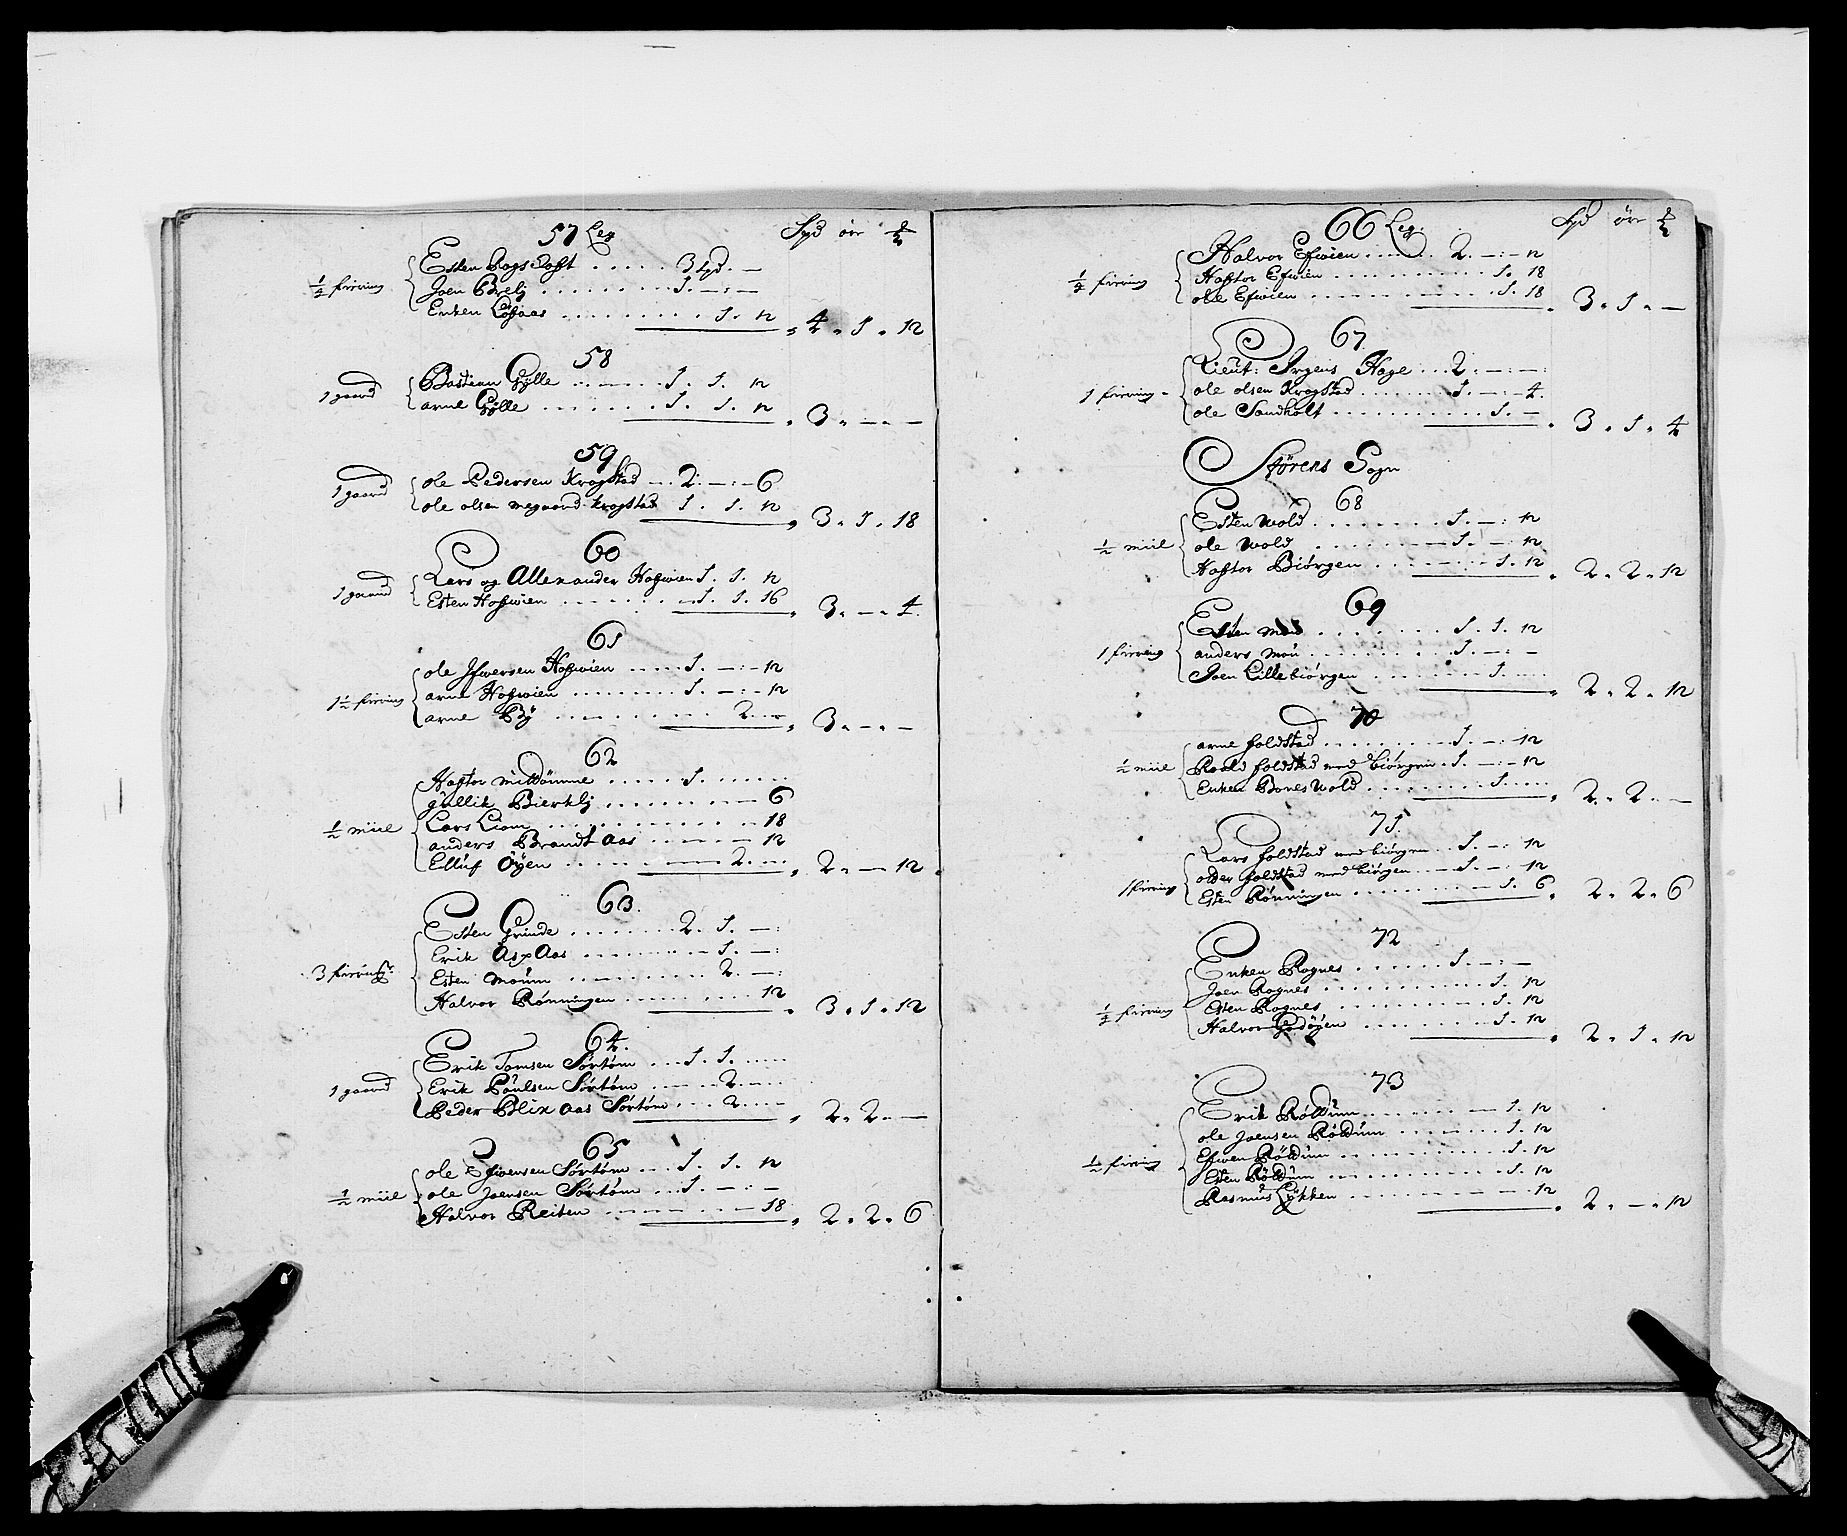 57 Leg Spd öre
Esten Rogstofft 3 spd. —
½ fiering Joen Brelj 1. —: —
Enken Losaas 1. 12
4. 1. 12
58
1 gaard Bastian Gylle 1. 1. 12
arne Gylle 1. 1. 12
3. — —
59
1 gaard ole Pedersen Krogstad 2. —: 6
ole olsen megaard Krogstad 1. 1. 12
3. 1. 18
60
1 gaard Lars og Allexander Hofwien 1. 1. 12
Esten Hofwien 1. 1. 16
3. — 4.
61
ole Ifwersen Hofwien 1. —: 12
1½ fiering arne Hofwien 1. —: 12
arne By 2.
3. — —
62
Haftor mittdømme 1.
gullik Bierklj 6
½ miil Lars Liom 18
anders Brandt aas 12
Elluf Öyen 2.
2. — 12.
63.
Esten Grinde 2. 1. —:
Erik Asp Aas 1. —:
3 fiering Esten moum 2. —:
Halvor Rønningen 12
3. 1. 12
64.
Erik Tomsen Sørtøm 1. 1.
1 gaard Erik Poulsen Sørtøm 2.
Peder Blix aas Sørtøm 2.
2. 2. —
65
ole Efwensen Sørtøm 1. 1. 12
½ miil ole Joensen Sørtøm 1. —. —
Halvor Reiten 18
2. 2. 6
66 Leg. Spd öre
Halvor Efwien 2. —: 12
½ fiering Haftor Efwien 1. 18
ole Efwien 1. 18
3. 1. —
67
Lieut: Irgens Hage 2. —. —:
1 fiering ole olsen Krogstad 1. —: 4.
ole Sandholt 1. —
3. 1. 4
Størens Sogn
68
Esten Wold 1. —: 12
½ miil ole Wold 1. —: 12
Haftor Biørgen 1. 12
2. 2. 12
69
Esten moe 1. 1. 12
1 fiering anders mou 1. —: —
Joen Lillebiørgen 1.
2. 2. 12
70
arne foldstad 1. —: 12
½ miil Roald foldstad med biørgen 1. —: 12
Enken Bones Wold 1.
2. 2. —
71.
Lars foldstad med biørgen 1. —: 12
1 fiering older foldstad med biørgen 1. —: 12
Esten Rønningen 1. 6
2. 2. 6
72
Enken Rognes 1. —: —
Joen Rognes 1. 12
½ fiering Esten Rognes 1. 12
Halvor Godøyen 1. 12
2. 1. 12
73
Erik Røldum 1. 12
ole Joensen Røldum 1. 12
½ fiering Efwen Røldum 1. 12
Esten Røldum 1. 12
Rasmus Løkken 12
2. —. 12